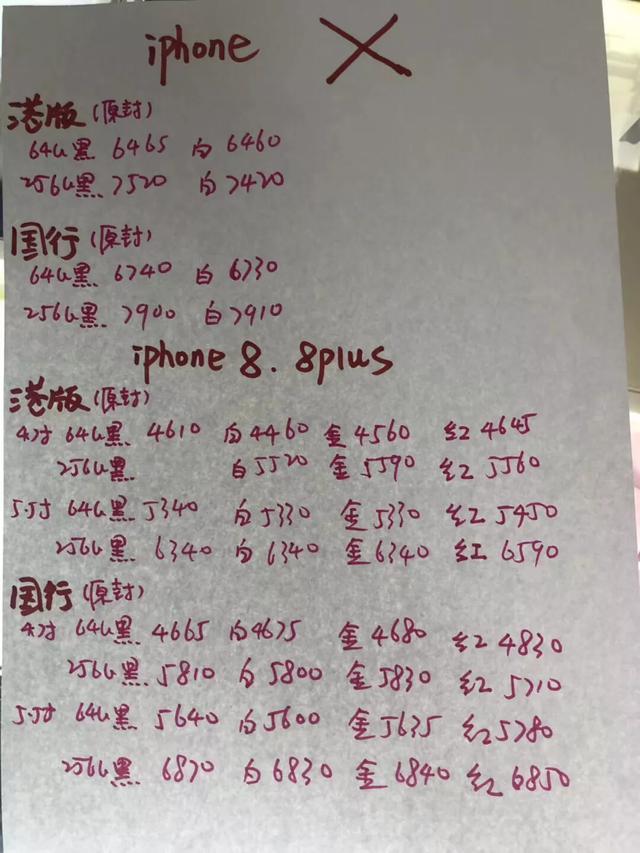 iphone X
港版(原封)
64G黑 6465 白6460
256G黑 7520 白7420
国行(原封)
64G黑 6740 白6730
256G黑 7900 白7910
iphone 8. 8plus
港版(原封)
4.7寸 64G黑 4610 白4460 金4560 红4645
256G黑 白5520 金5590 红5560
5.5寸 64G黑 5340 白5330 金5330 红5450
256G黑 6340 白6340 金6340 红6590
国行(原封)
4.7寸 64G黑 4665 白4675 金4680 红4830
256G黑 5810 白5800 金5830 红5710
5.5寸 64G黑 5640 白5600 金5635 红5780
256G黑 6870 白6830 金6840 红6850